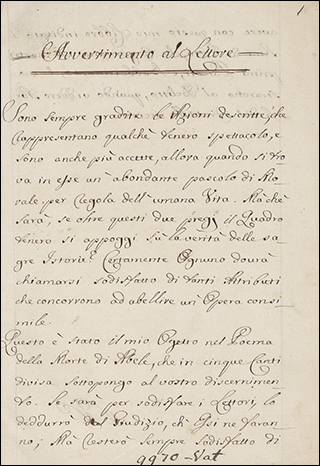 1
Avvertimento al Lettore
Sono sempre gradite le Azioni descritte, che
rappresentano qualche tenero spettacolo, e
sono anche più accette, allora quando si tro
va in esse un abondante pascolo di Mo_
rale per Regola dell'umana Vita. Mà che
sarà, se oltre questi due pregj il Quadro
tenero si appoggi sù la verità delle sa_
gre Istorie? Certamente Ognuno dourà
chiamarsi sodisfatto di tanti Attributi
che concorrono ad abellire un'Opera consi_
mile.
Questo è stato il mio Ogetto nel Poema
della Morte di Abele, che in cinque Canti
divisa sottopongo al vostro discernimen_
to. Se sarà per sodisfare i Lettori, lo
dedurrò dal Giudizio, ch'Essi ne faran_
no; Mà resterò sempre sodisfatto di
9970-Vat